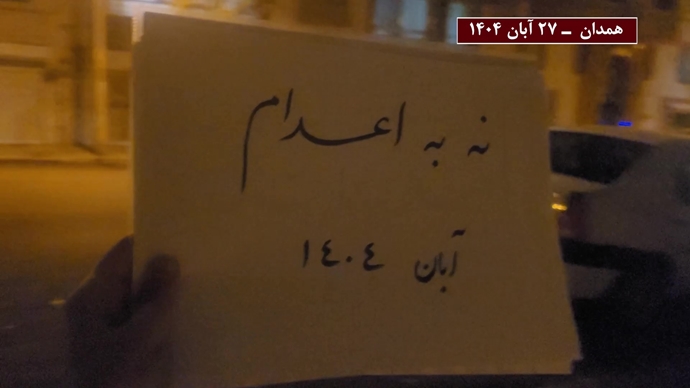 همدان ـ ۲۷ آبان ۱۴۰۴
نه به اعدام
آبان ۱۴۰۴